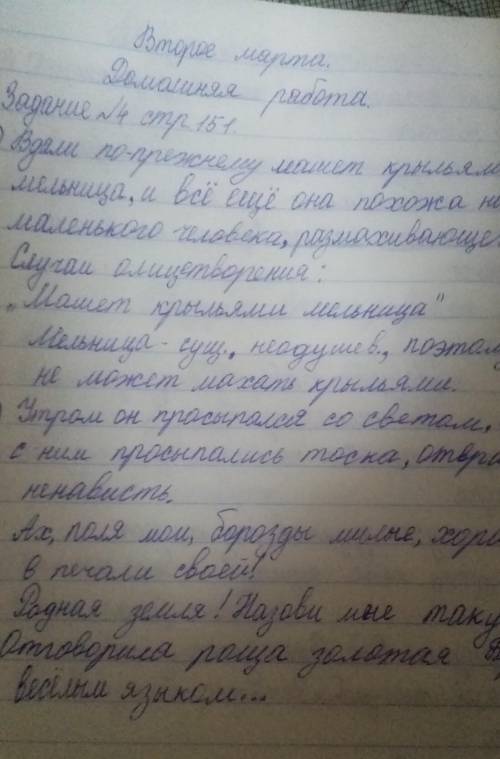 Второе марта.
Домашняя работа.
Задание №4 стр 151.
Вдали по-прежнему машет крыльями
мельница, и всё ещё она похожа на
маленького человека, размахивающего
Случаи олицетворения:
„Машет крыльями мельница"
Мельница - сущ., неодушев., поэтому
не может махать крыльями.
Утром он просыпался со светом,
с ним просыпались тоска,
ненависть.
Ах, поля мои, борозды милые,
в печали своей!
Родная земля! Назови мне
Отговорила роща золотая
весёлым языком...